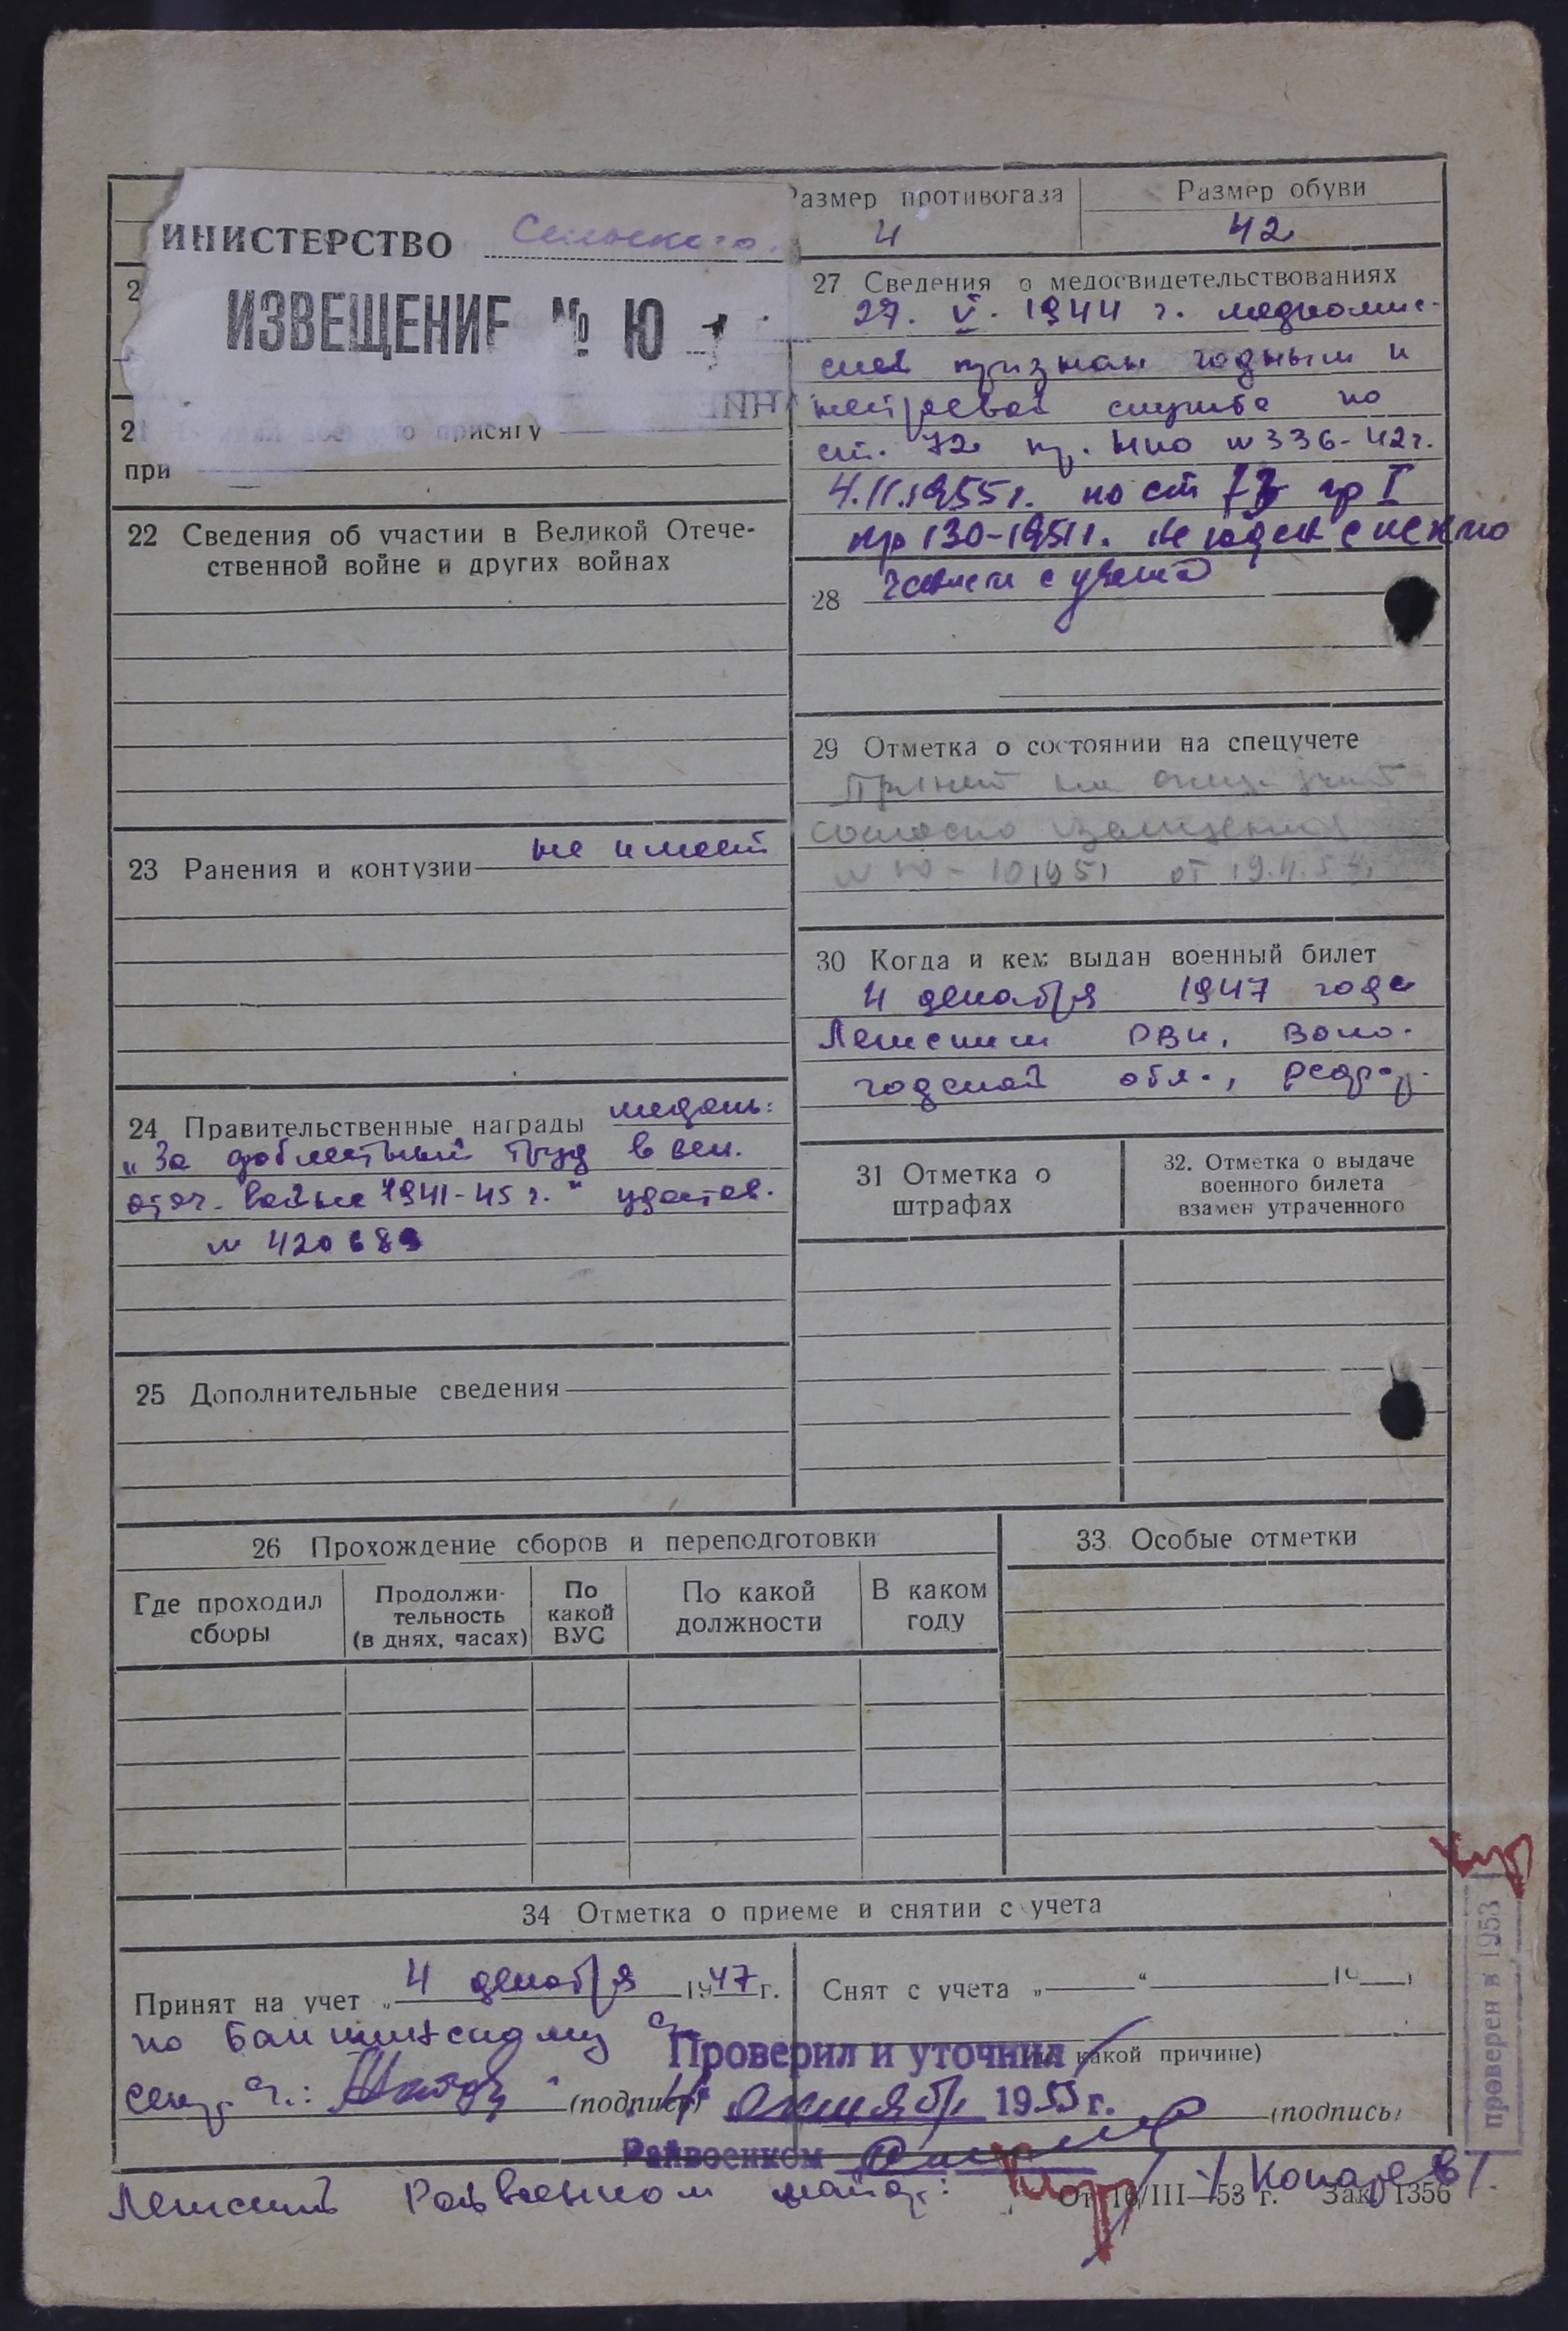 Размер противогаза
4
Размер обуви
42
ИНИСТЕРСТВО Сельского
ИЗВЕЩЕНИЕ № Ю
2
21 присягу
при
22 Сведения об участии в Великой Отече-
ственной войне и других войнах
23 Ранения и контузии не имеет
24 Правительственные награды медаль:
„За доблестный труд в вел.
отеч. войне 1941-45 г." удостов.
№ 420689
25 Дополнительные сведения
27 Сведения о медосвидетельствованиях
27. V. 1944 г. медкомис-
сией признан годным к
нестроевой службе по
ст. 72 пр. НКО № 336-42 г.
4.II.1955 г. по ст гр I
пр 130-1951 г. Не годен с исклю
чением с учета
28
29 Отметка о состоянии на спецучете
Принят на спец. учет
согласно извещения
№ Ю-101951 от 19.
30 Когда и кем выдан военный билет
4 декабря 1947 года
Лежским РВК, Воло-
годской обл.,
31 Отметка о
штрафах
32. Отметка о выдаче
военного билета
взамен утраченного
26 Прохождение сборов и переподготовки
Где проходил
сборы
Продолжи-
тельность
(в днях, часах)
По
какой
ВУС
По какой
должности
В каком
году
33. Особые отметки
34 Отметка о приеме и снятии с учета
Принят на учет „ 4 декабря 1947 г.
по
(подпись)
Снят с учета „ “ 19
какой причине)
(подпись)
Проверил и уточнил
октября 1953 г.
Райвоенком
Лежский Райвоенком майор:
От 16/III—53 г. Зак. 1356
проверен в 1953